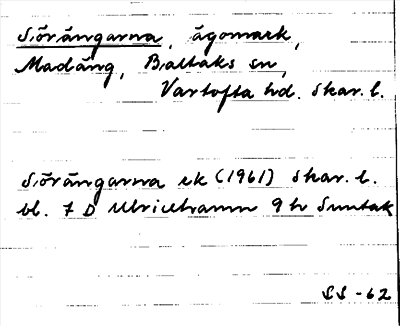 Sörängarna, ägomark,
Madäng, Baltaks sn,
Vartofta hd. Skar. l.
Sörängarna ek (1961) Skar. l.
bl. 7 D Ulricehamn 9 h Suntak
SS -62